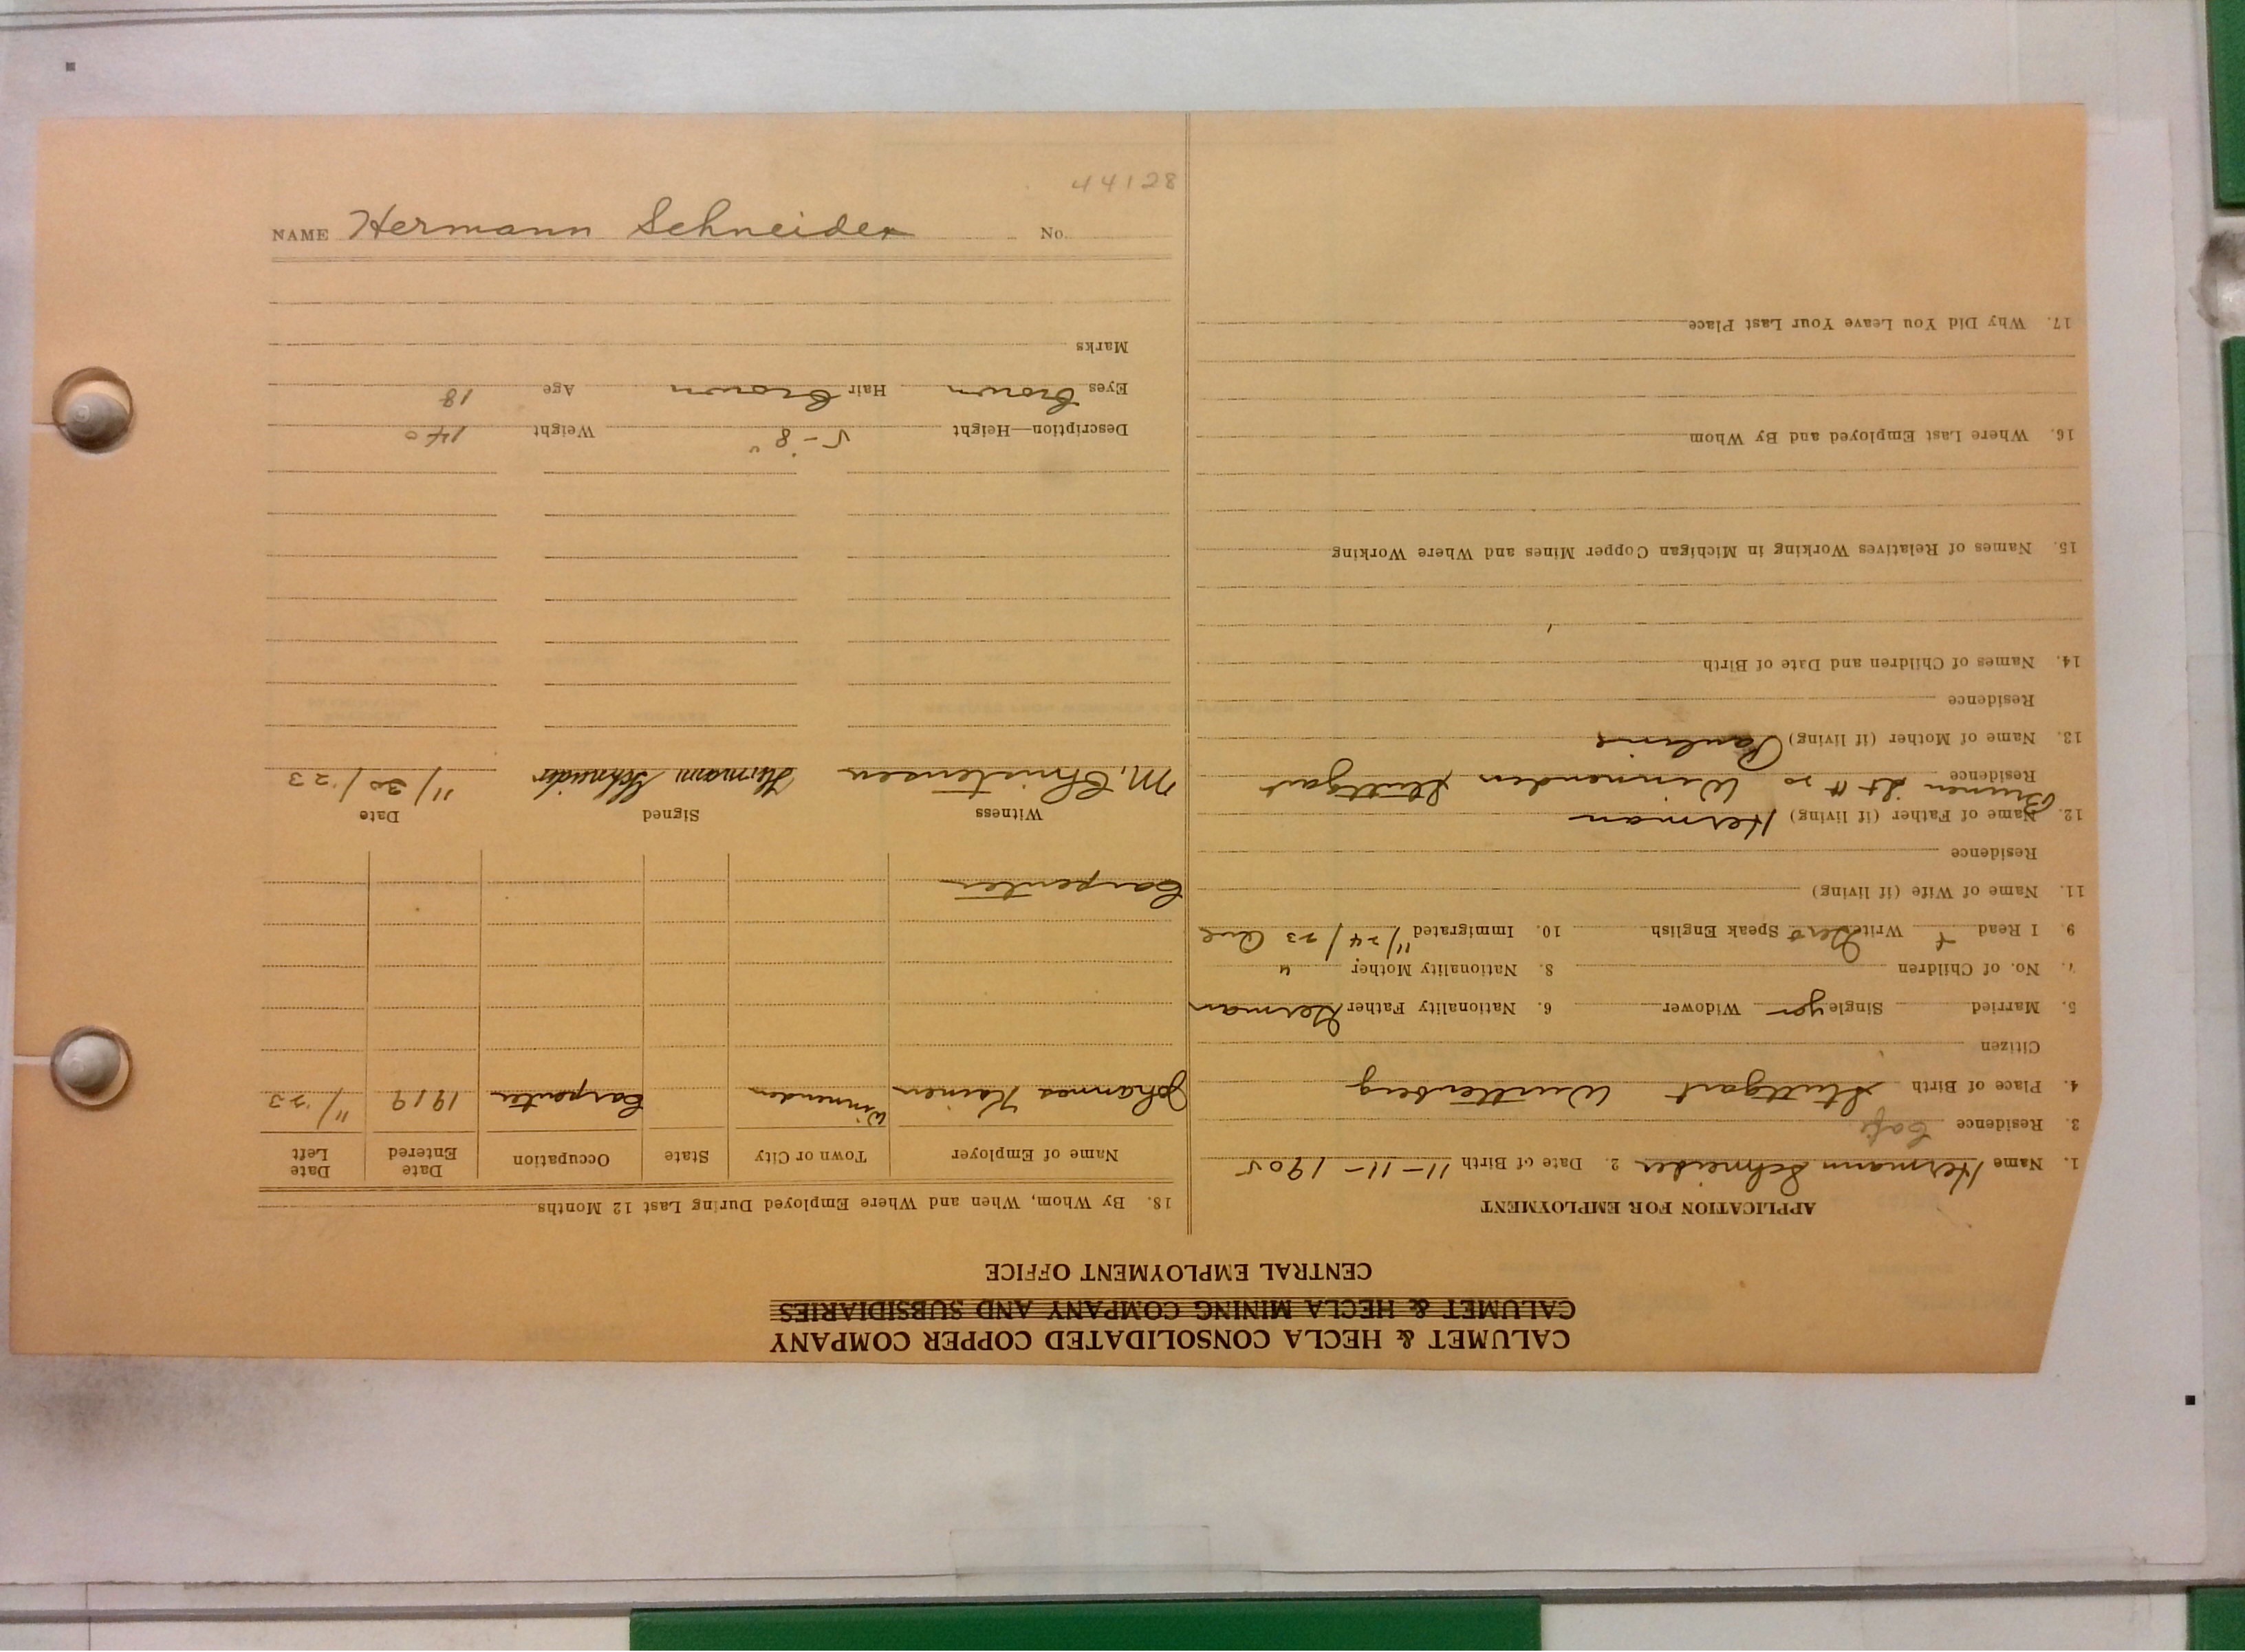 44128
NAME Hermann Schneider No.
CALUMET & HECLA CONSOLIDATED COPPER COMPANY
CALUMET & HECLA MINING COMPANY AND SUBSIDIARIES
CENTRAL EMPLOYMENT OFFICE
APPLICATION FOR EMPLOYMENT
1. Name Hermann Schneider 2. Date of Birth 11-11-1905
3. Residence
4. Place of Birth Stuttgart Wurttenberg
Citizen
5. Married Single yes Widower 6. Nationality Father German
7. No. of Children 8. Nationality Mother "
9. I Read + Write Speak English 10. Immigrated 11/24/23
11. Name of Wife (if living)
Residence
12. Name of Father (if living) Herman
Residence Brunen St # 20 Winnenden Stuttgart
13. Name of Mother (if living) Pauline
Residence
14. Names of Children and Date of Birth
15. Names of Relatives Working in Michigan Copper Mines and Where Working
16. Where Last Employed and By Whom
17. Why Did You Leave Your Last Place
18. By Whom, When and Where Employed During Last 12 Months
Name of Employer Town or City State Occupation Date Entered Date Left
Johannes Winnenden Carpenter 1919 11/23
Carpenter
Witness Signed Date
M. Christensen Hermann Schneider 11/30/23
Description—Height 5-8" Weight 140
Eyes Brown Hair Brown Age 18
Marks